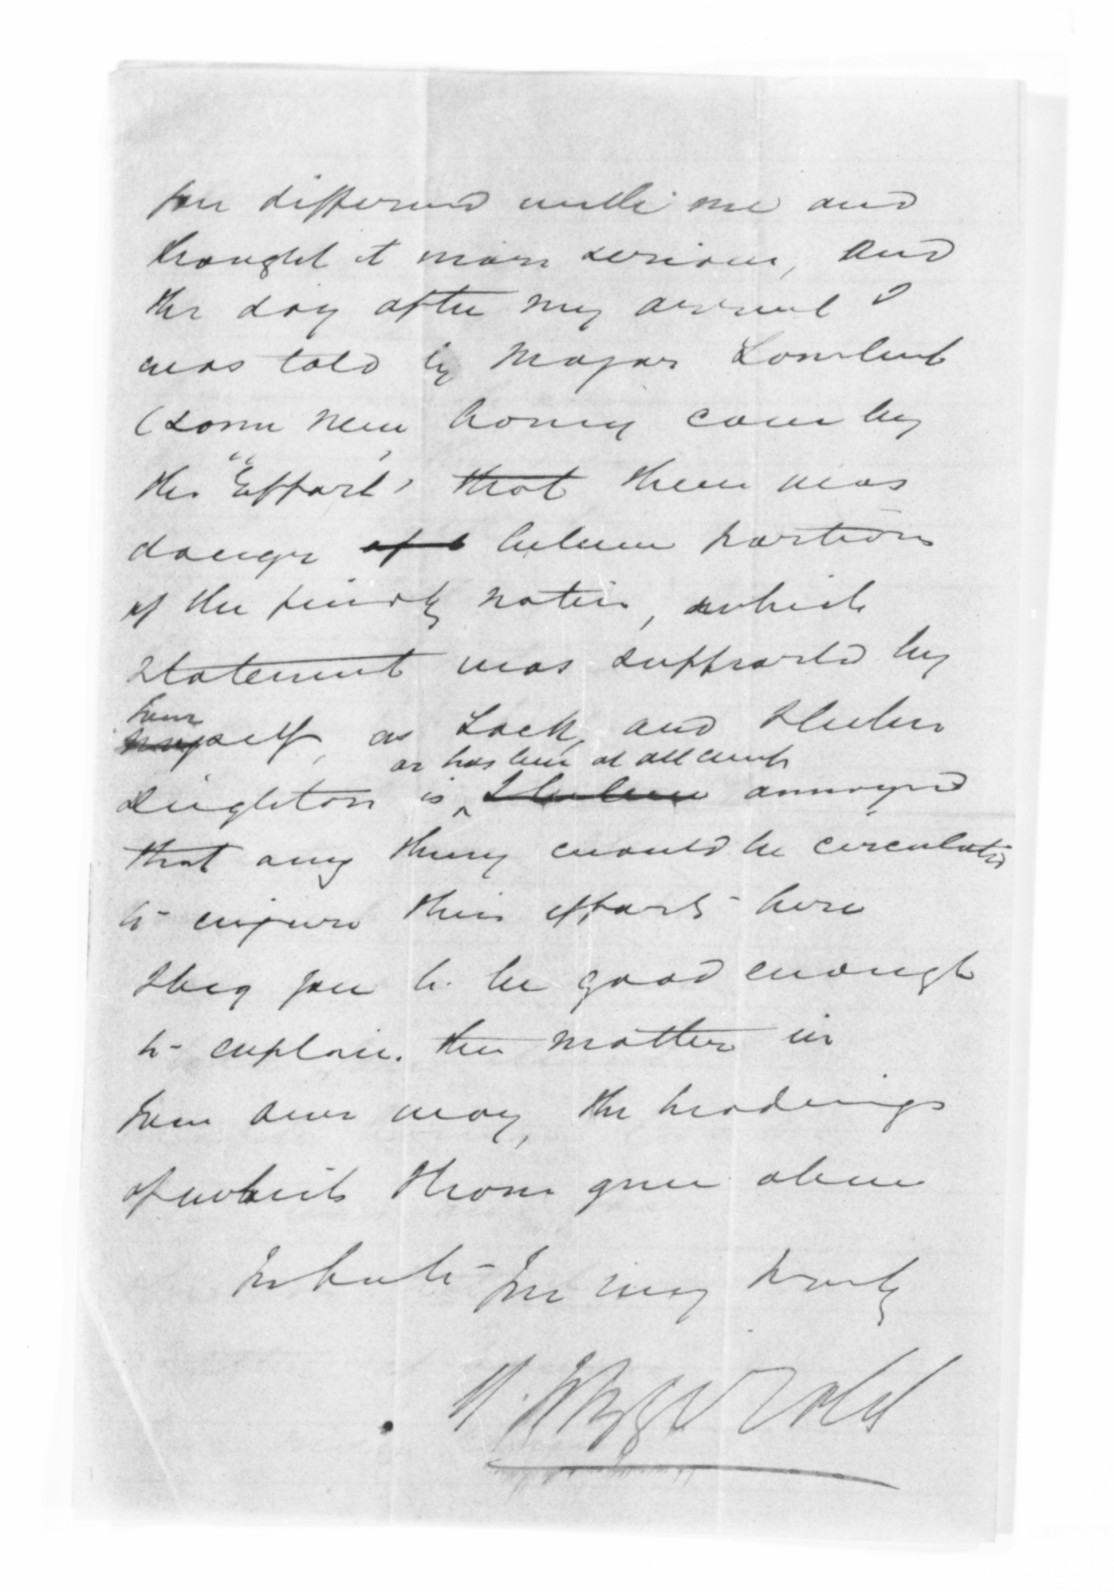 you differed with me and
thought it more serious, and
the day after my arrival I
was told by Major Lambert
(some News having come by
the "Effort" that there was
danger between portions
of the friendly natives, which
statement was supported by
yourself, as Lock, and I believe
Deighton is as has been at all events annoyed
that any thing would be circulated
to injure their efforts here
I beg you to be good enough
to explain the matter in
your own way, the headings
of which I have given above
In haste Yrs very truly
Fitzgerald